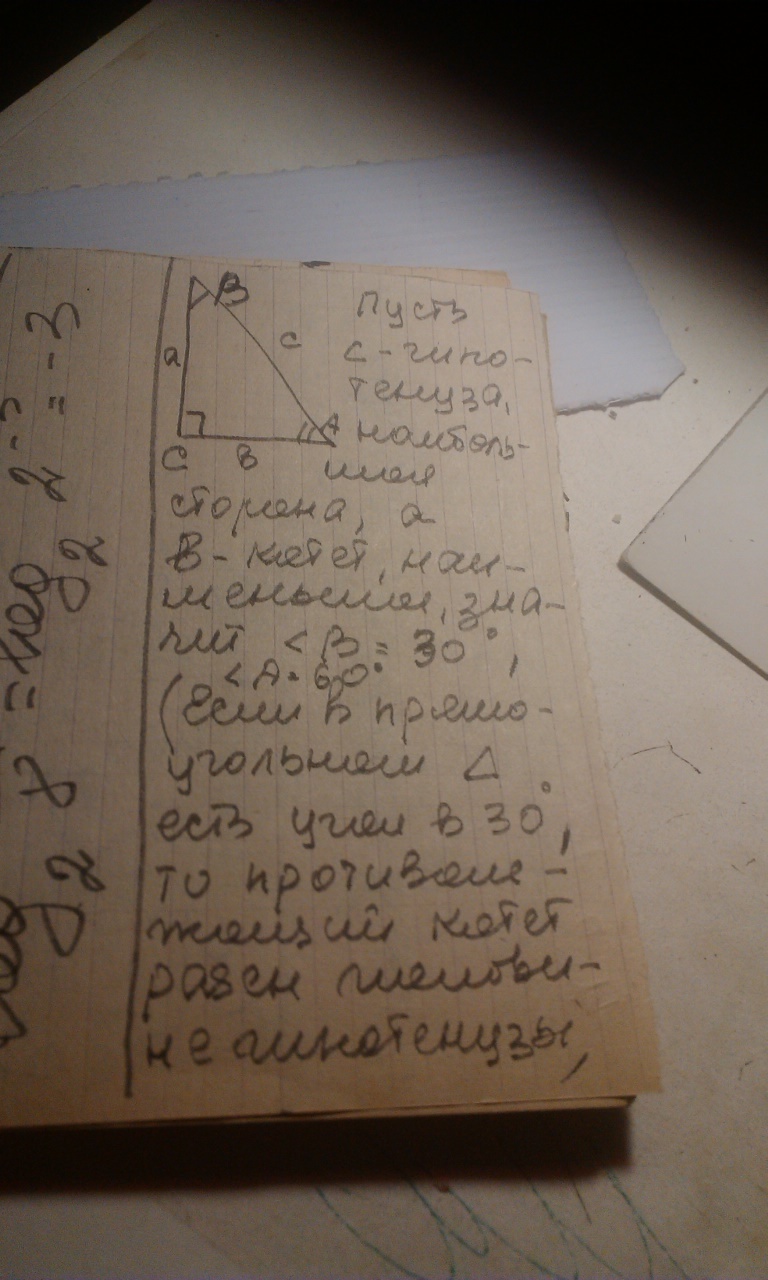 B
a
c
C
в
A
Пусть
с - гипо-
тенуза,
наиболь-
шая
сторона, а
в - катет, наи-
меньший, зна-
чит < B = 30°,
< A = 60°
(Если в прямо-
угольном Δ
есть угол в 30°,
то противоле-
жащий катет
равен
не гипотенузы,
8 = log₂ 2⁻³ = -3